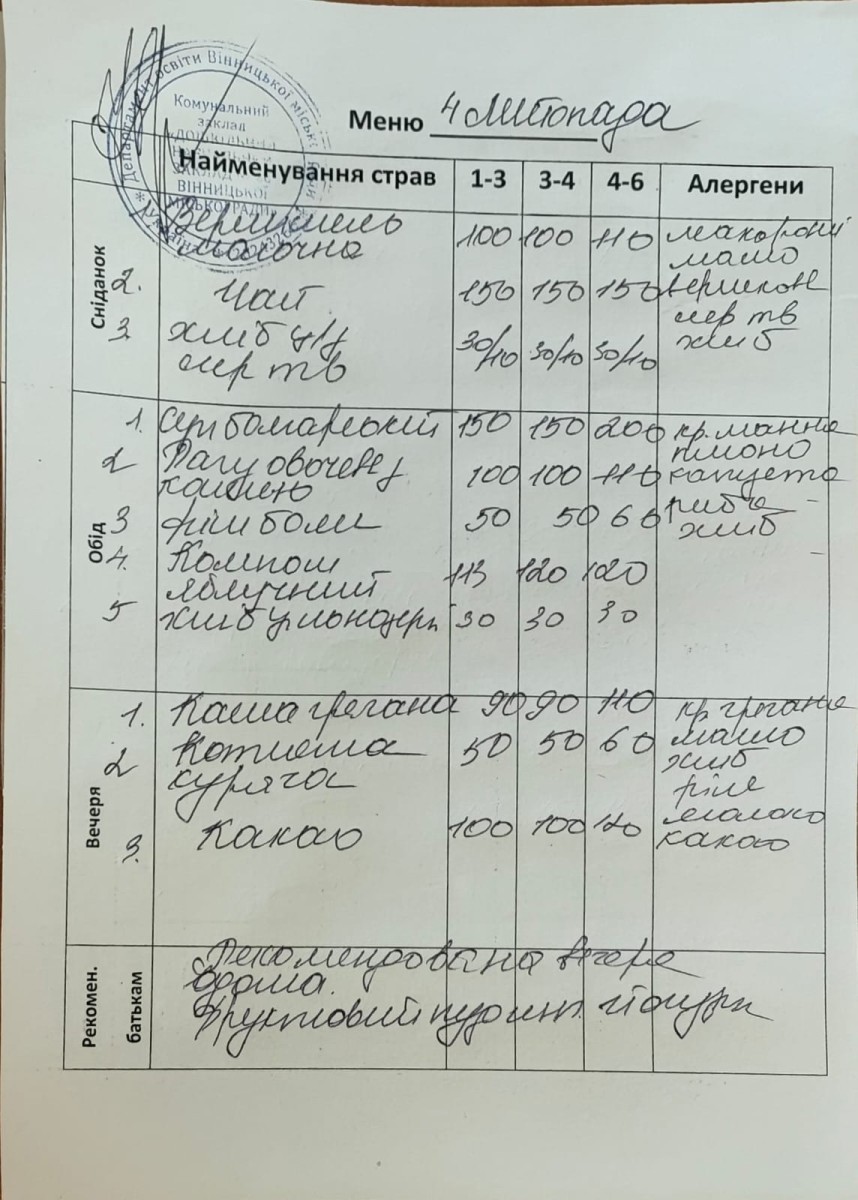 Департамент освіти Вінницької міської
Комунальний
заклад
ВІННИЦЬКОЇ
МІСЬКОЇ РАДИ
Меню 4 листопада
Найменування страв 1-3 3-4 4-6 Алергени
Сніданок
Вермішель
молочна 100 100 110 макорони
масло
2. Чай 150 150 150 вершкове
сир тв
3 хліб ц/з 30/10 30/10 30/10 хліб
сир тв
Обід
1. Суп болгарський 150 150 200 кр. манна
2 Рагу овочеве з 100 100 110 капуста
3 фішболи 50 50 60 риба
хліб
4. Компот
яблучний 113 120 120
5 хліб цільнозерн 30 30 30
Вечеря
1. Каша гречана 90 90 110 кр гречана
2 Котлета 50 50 60 масло
хліб
куряча філе
молоко
3. Какао 100 100 120 какао
Рекомен.
батькам
Рекомендована вечеря
вдома.
Фруктовий пудинг. йогурт